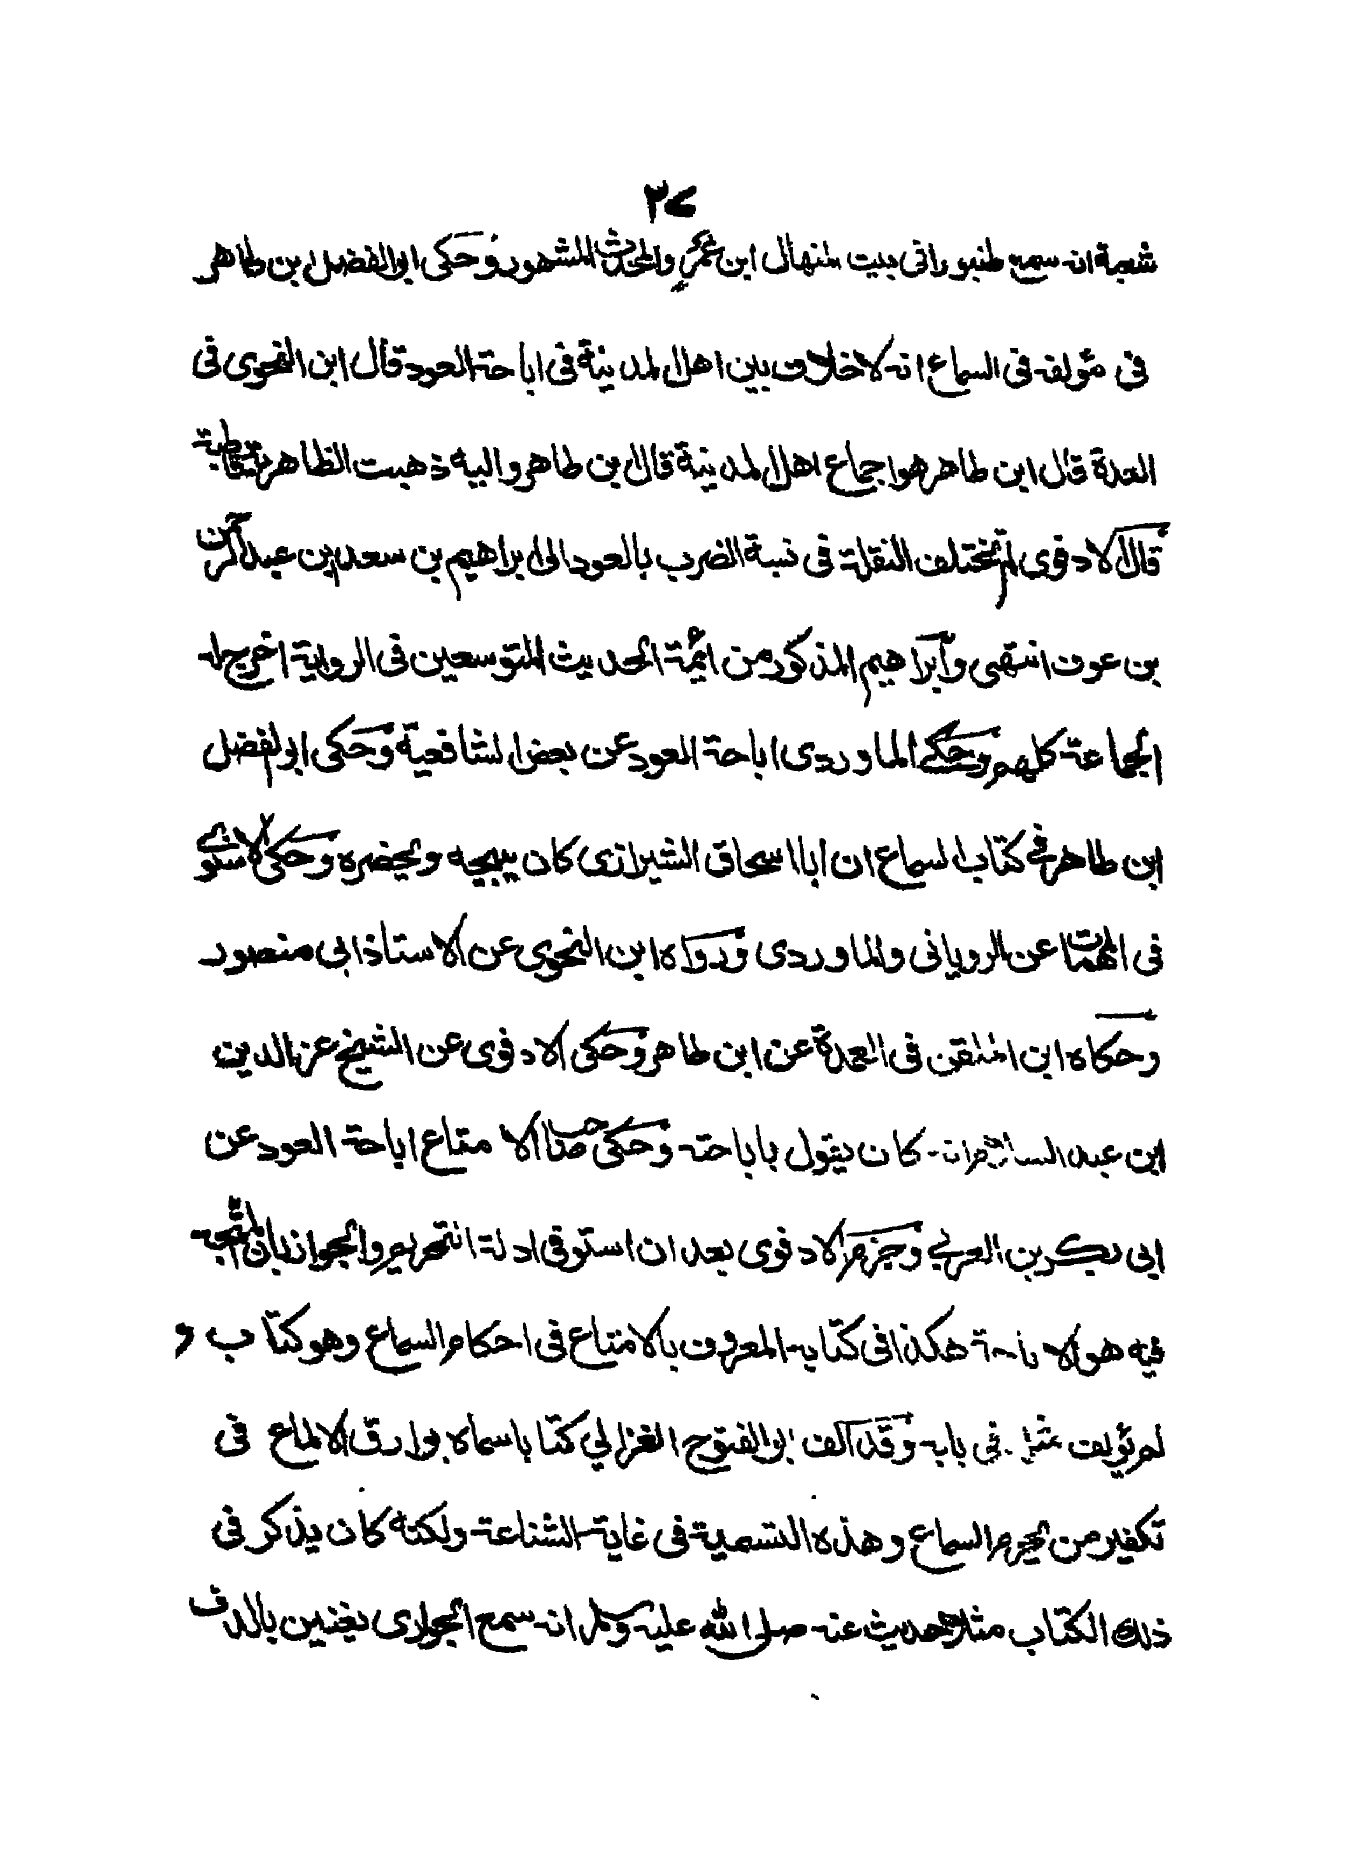 ٣٧
شعبة انه سمع طنبورا فى بيت المنهال ابن عمرو المحدث المشهور وحكى ابو الفضل ابن طاهر
فى مؤلفه فى السماع انه لا خلاف بين اهل المدينة فى اباحة العود قال ابن النحوى فى
العمدة قال ابن طاهر هو اجماع اهل المدينة قال ابن طاهر واليه ذهبت الظاهرية قاطبة
قال الادفوى لم تختلف النقلة فى نسبة الضرب بالعود الى ابراهيم بن سعد بن عبد الرحمن
بن عوف انتهى وابراهيم المذكور من ائمة الحديث المتوسعين فى الرواية اخرج له
الجماعة كلهم وحكى الماوردى اباحة العود عن بعض الشافعية وحكى ابو الفضل
ابن طاهر فى كتاب السماع ان ابا اسحاق الشيرازى كان يبيحه ويحضره وحكى الاسنوى
فى المهمات عن الرويانى والماوردى ورواه ابن النحوى عن الاستاذ ابى منصور
وحكاه ابن الملقن فى العمدة عن ابن طاهر وحكى الادفوى عن الشيخ عز الدين
ابن عبد السلام انه كان يقول باباحته وحكى صاحب الامتاع اباحة العود عن
ابى بكر بن العربي وجزم الادفوى بعد ان استوفى ادلة التحريم والجواز بان المتجه
فيه هو الاباحة هكذا فى كتابه المعروف بالامتاع فى احكام السماع وهو كتاب و
لم يؤلف مثله فى بابه وقد الف ابو الفتوح الغزالي كتابا سماه بوارق الالماع فى
تكفير من يحرم السماع وهذه التسمية فى غاية الشناعة ولكنه كان يذكر فى
ذلك الكتاب مثلا حديث عنه صلى الله عليه وسلم انه سمع الجوارى يغنين بالدف